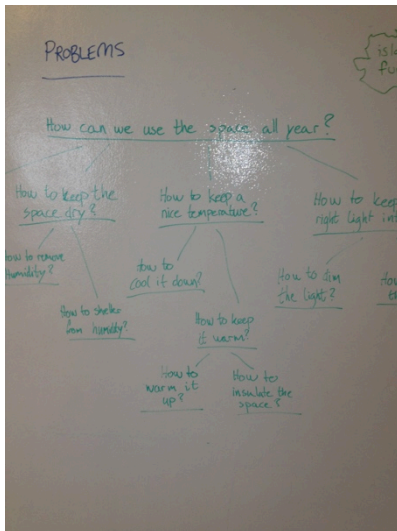 PROBLEMS
How can we use the space all year?
How to keep the
space dry?
How to keep a
nice temperature?
How to keep
right light
How to remove
humidity?
How to shelter
from humidity?
How to
cool it down?
How to keep
it warm?
How to dim
the light?
How to
warm it
up?
How to
insulate the
space?